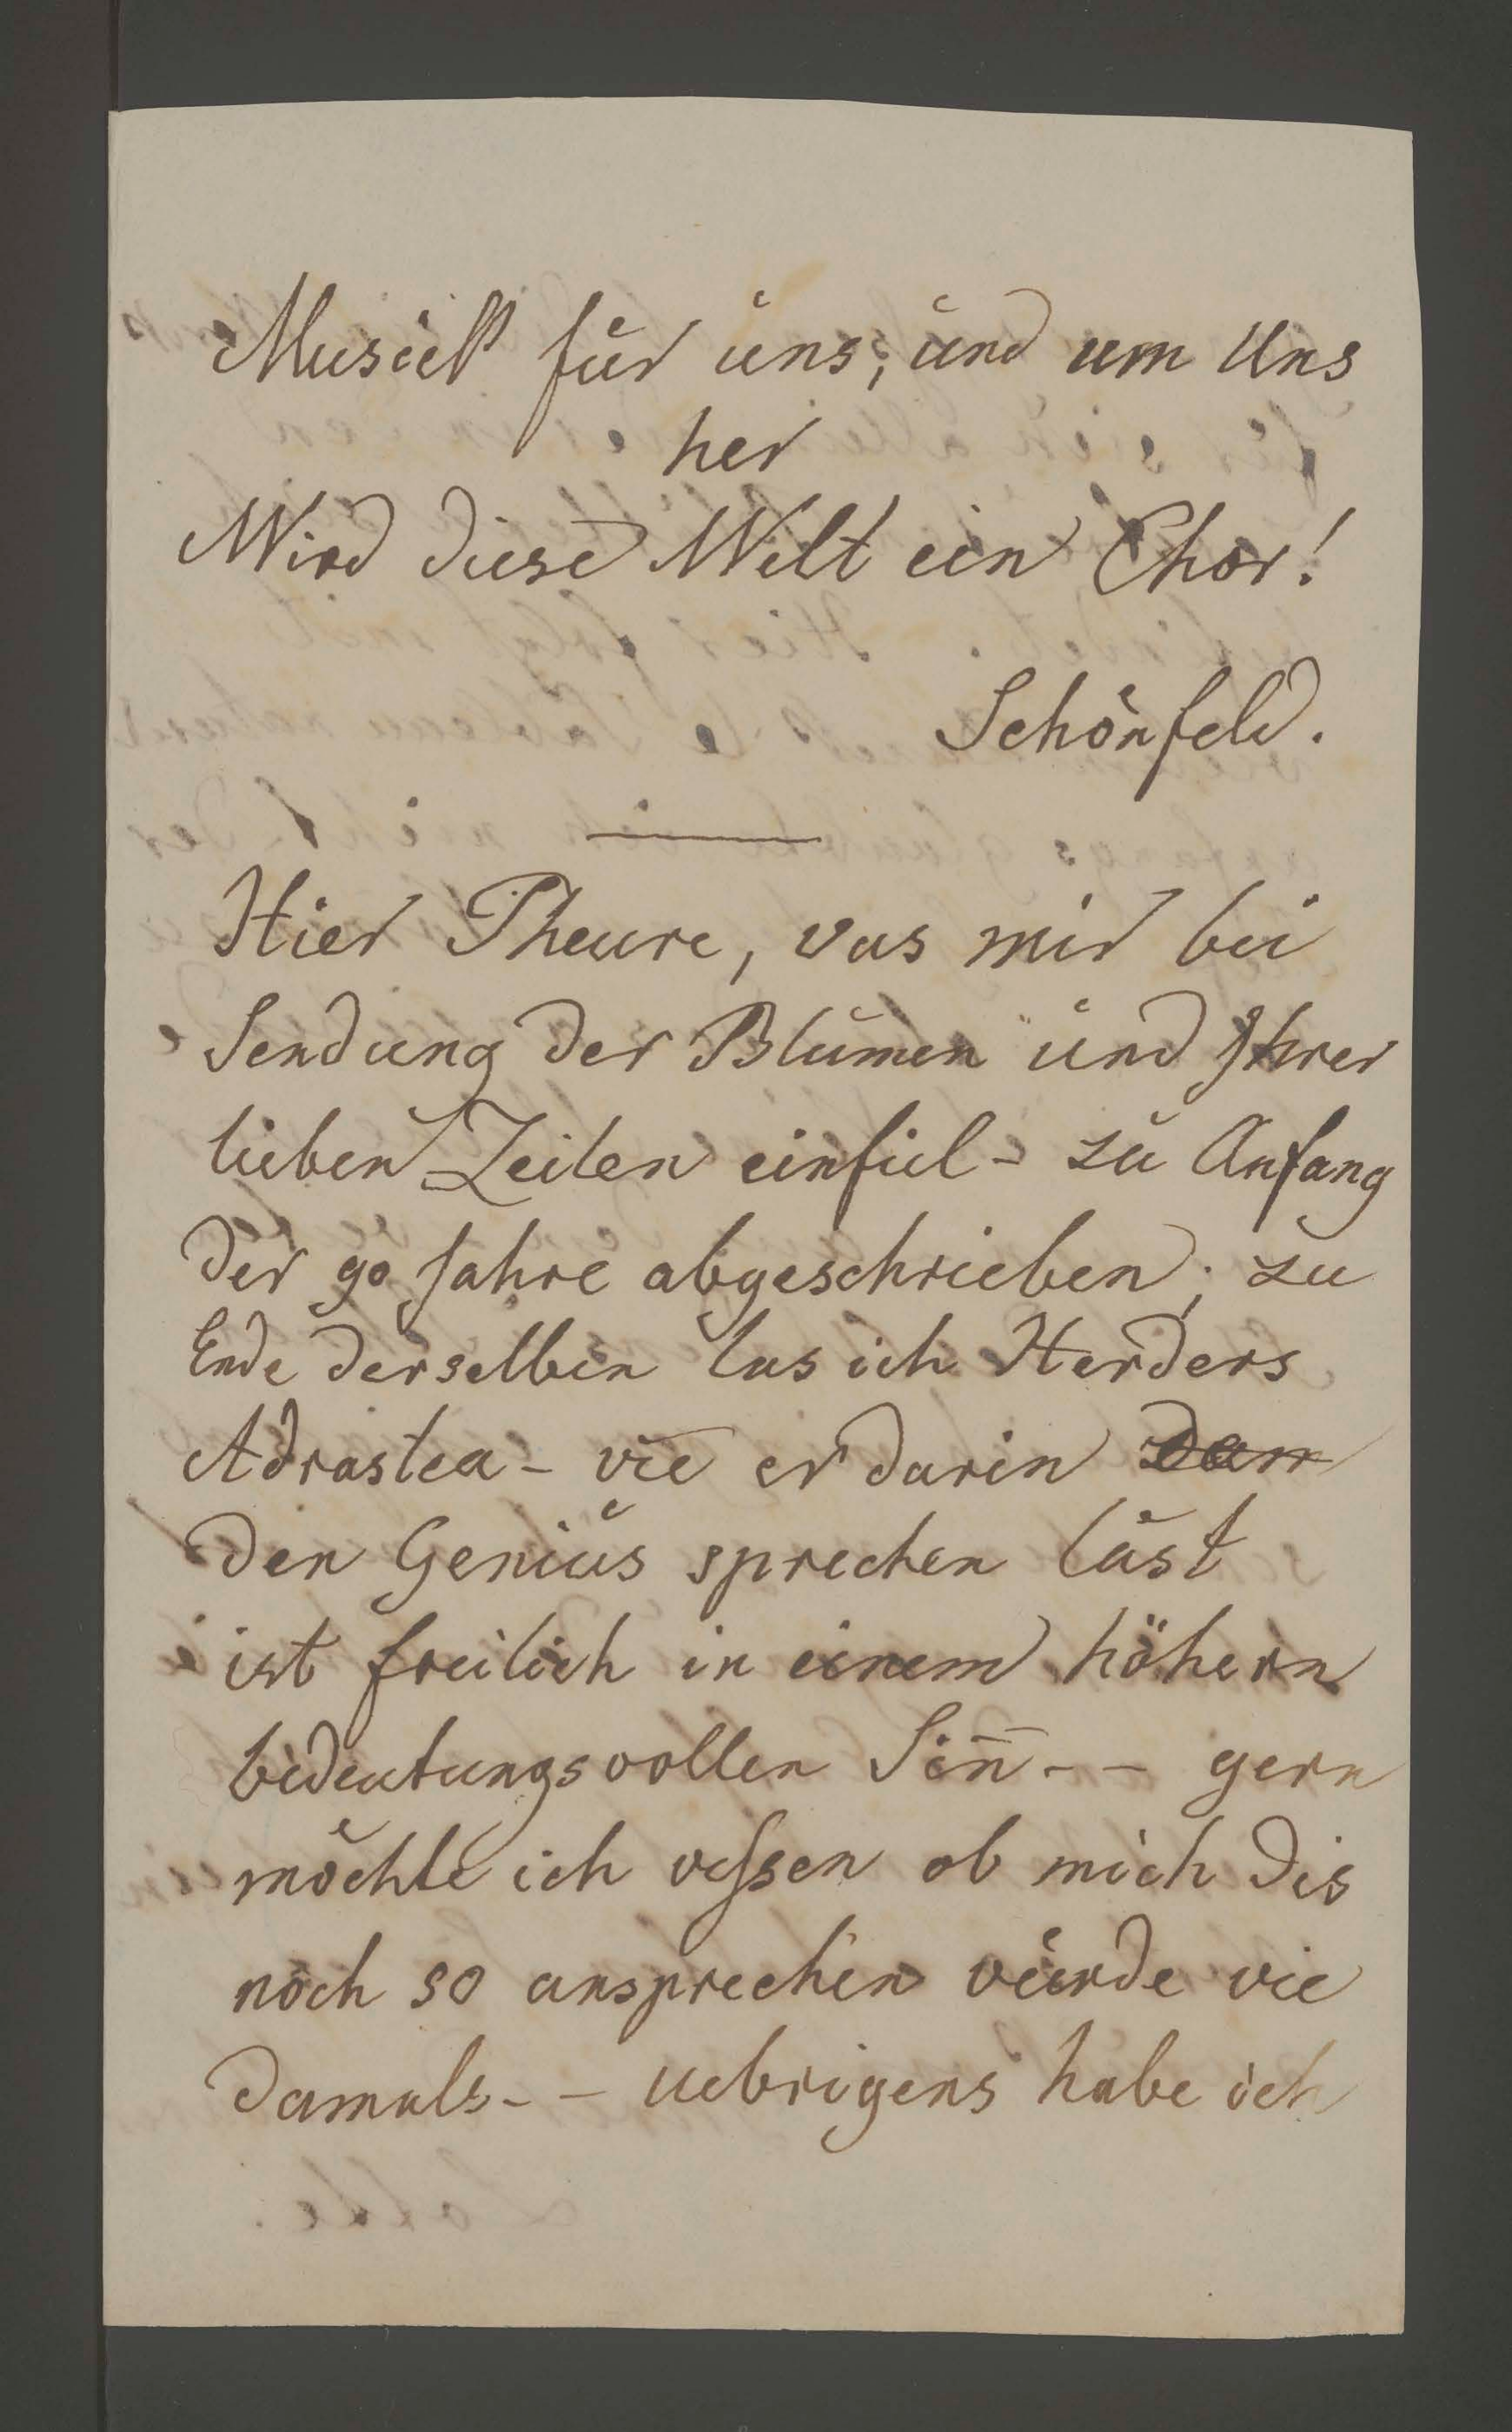 Musick für uns, und um Uns
her
Wird diese Welt ein Chor!
Schönfeld.
Hier Theure, was mir bei
Sendung der Blumen und Ihrer
lieben Zeilen einfiel - zu Anfang
der 90 Jahre abgeschrieben; zu
Ende derselben las ich Herders
Adrastea - wie er darin den
den Genius sprechen läst
ist freilich in einem höhern
bedeutungsvollen Sin̄ - - gern
möchte ich wissen ob mich dis
noch so ansprechen würde wie
damals - - uebrigens habe ich